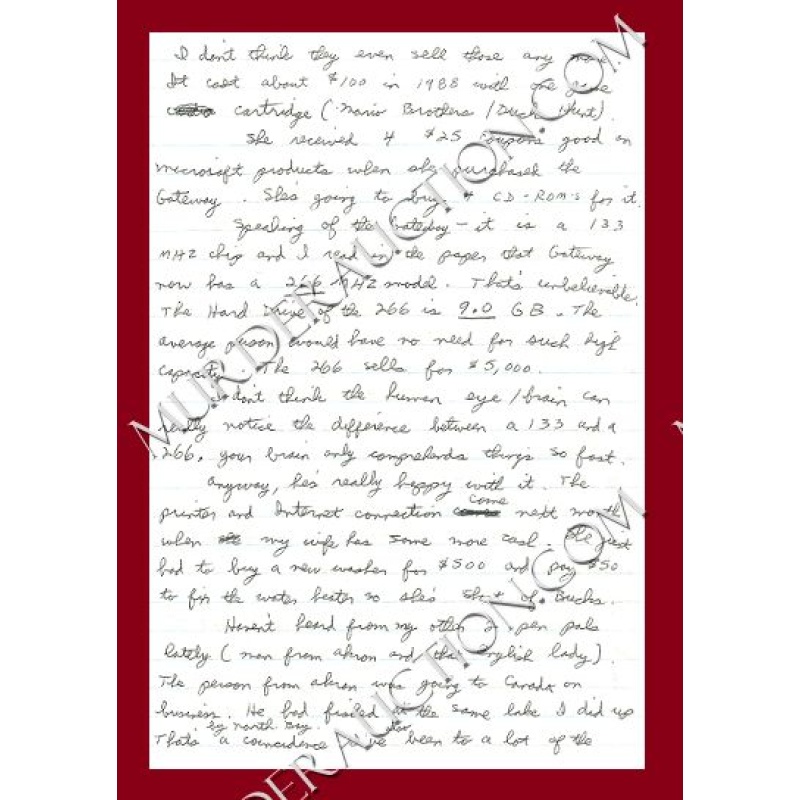 I don't think they even sell those any more.
It cost about $100 in 1988 with one game
cartridge (Mario Brothers / Duck Hunt)
She received 4 $25 coupons good on
microsoft products when she purchased the
Gateway. She's going to buy 4 CD-ROM's for it.
Speaking of the Gateway - it is a 133
MHZ chip and I read in the paper that Gateway
now has a 266 MHZ model. That's unbelievable.
The Hard Drive of the 266 is 9.0 GB. The
average person would have no need for such high
capacity. The 266 sells for $5,000.
I don't think the human eye/brain can
really notice the difference between a 133 and a
266, your brain only comprehends things so fast.
Anyway, he's really happy with it. The
printer and Internet connection come next month
when my wife has some more cash. She just
had to buy a new washer for $500 and pay $50
to fix the water heater so she's short of Bucks.
Haven't heard from my other 2 pen pals
lately (man from akron and the English lady).
The person from akron was going to Canada on
business. He had fished at the same lake I did up
by north Bay.
That's a coincidence I've also been to a lot of the
MURDERAUCTION.COM
MURDERAUCTION.COM